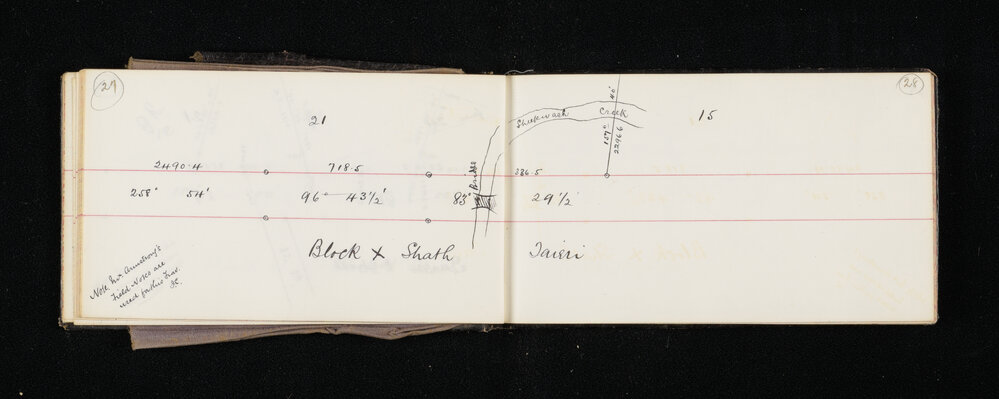 29
28
21
15
Sheepwash Creek
157° 40'
2296.6
2490.4
718.5
386.5
258° 54'
96° 43½'
83° 29½'
Bridge
Block X Strath Taieri
Note, Mr. Armstrong's
Field Notes are
used for this Trav.